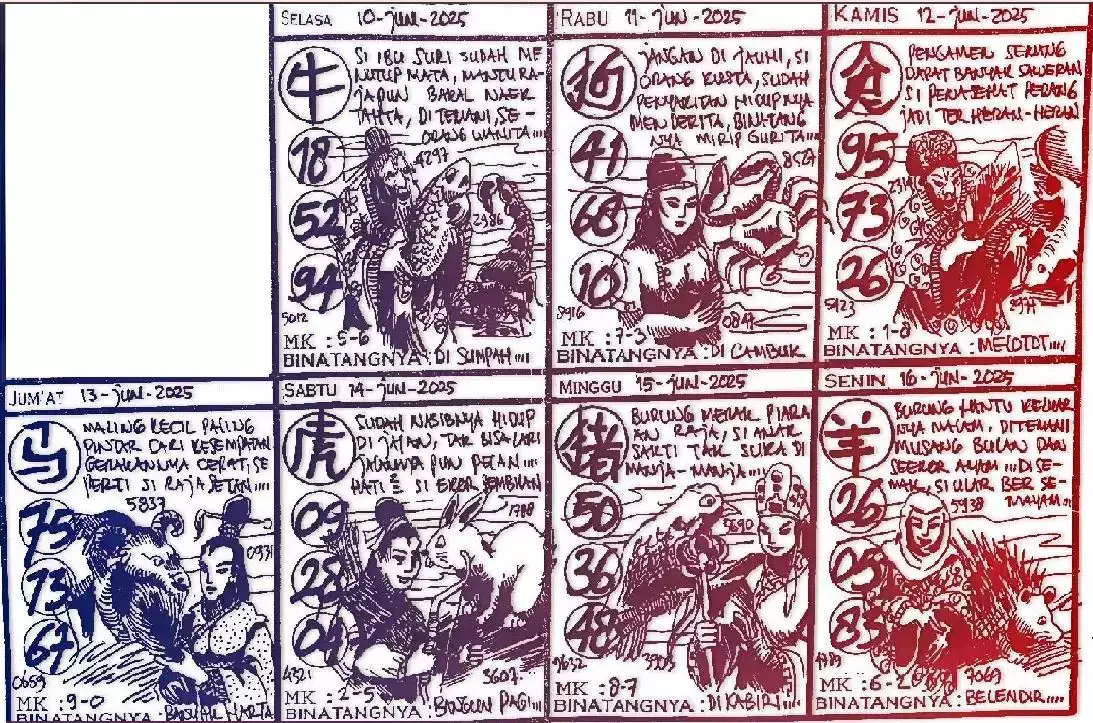 SELASA 10-JUN-2025
牛
SI IBU SURI SUDAH ME
NUTUP MATA, MANTU RA-
JAPUN BAKAL NAEK
TAHTA, DITEMANI, SE-
ORANG WANITA....
18
52
94
4297
2386
5012
MK : 5-6
BINATANGNYA : DI SUMPAH....
RABU 11-JUN-2025
狗
JANGAN DI JAUHI, SI
ORANG KUSTA, SUDAH
PENYAKITAN HIDUPNYA
MENDERITA, BINATANG
NYA MIRIP GURITA....
41
68
10
8527
8916
0847
MK : 7-3
BINATANGNYA : DI CAMBUK
KAMIS 12-JUN-2025
PENGAMEN SERING
DAPAT BANYAK SAWERAN
SI PENASEHAT PERANG
JADI TER HERAN-HERAN
95
73
26
5423
MK : 1-8
BINATANGNYA : MELOTOT....
JUM'AT 13-JUN-2025
马
MALING KECIL PALING
PINTAR CARI KESEMPATAN
GERAKANNYA CEPAT, SE
PERTI SI RAJA SETAN....
5837
75
73
67
0931
0689
MK : 9-0
BINATANGNYA : HARTA
SABTU 14-JUN-2025
虎
SUDAH NASIBNYA HIDUP
DI JALAN, TAK BISA LARI
JALANNYA PUN PELAN....
HATI SI EKOR
1788
09
28
04
4321
5607
MK : 2-5
BINATANGNYA : BANGUN PAGI....
MINGGU 15-JUN-2025
猪
BURUNG MERAK PIARA
AN RAJA, SI ANAK
SAKTI TAK SUKA DI
MANJA-MANJA....
50
36
48
5690
9632
MK : 8-7
BINATANGNYA : DI KABIRI....
SENIN 16-JUN-2025
羊
BURUNG HANTU KELUAR
NYA MALAM, DITEMANI
MUSANG BULAN DAN
SEEKOR AYAM....DI SE-
MAK, SI ULAR BER SE-
MAYAM...
5938
26
05
83
7069
MK : 6-2
BINATANGNYA : BELENDIR....